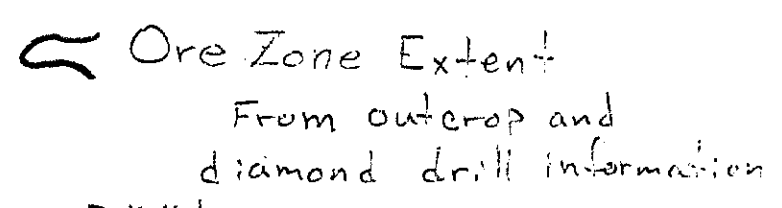 Ore Zone Extent
From outcrop and
diamond drill information